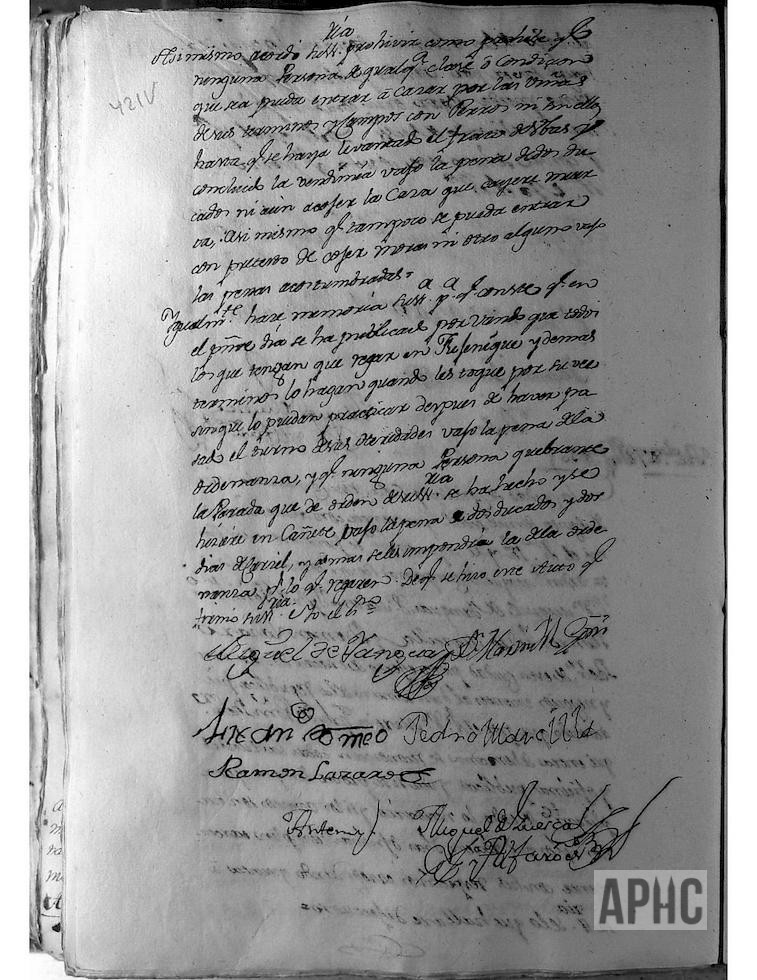 421V
ria
Asimismo acordó su ss. prohivir como prohive q.e
ninguna Persona de qualq.a clase ó Condicion
que sea pueda entrar á Cazar por las viñas
de sus terminos y Campos con Perros ni sin ellos
hasta q.e se haya levantado el fruto de
concluido la vendimia vajo la pena de dos du
cados ni aun á coger la Caza que cayere muer
ta. Asi mismo q.e tampoco se pueda entrar
con pretexto de coger moras ni otro alguno vajo
las penas acostumbradas.
Igualm.te hace memoria su ss.a p.a q.e conste q.e en
el p.nte dia se ha publicado por vando que todos
los que tengan que regar en y demas
terminos lo hagan quando les toque por su vez
sin que lo puedan practicar despues de haver pa
sado el turno de sus vajo la pena de la
ordenanza, y q.e ninguna Persona quebrante
la Parada que de orden de su ss.ria se ha hecho y se
hiciere en Cañete vajo la pena de dos ducados y dos
dias de Carcel, y ademas se les impondrá la de la orde
nanza p.r lo q.e regaren. De q.e se hizo este Auto q.e
firmó su ss.ria
Miguel de
Romeo Pedro
Ramon Lazaro
Antemi. Miguel de
y Alfaro
APHC